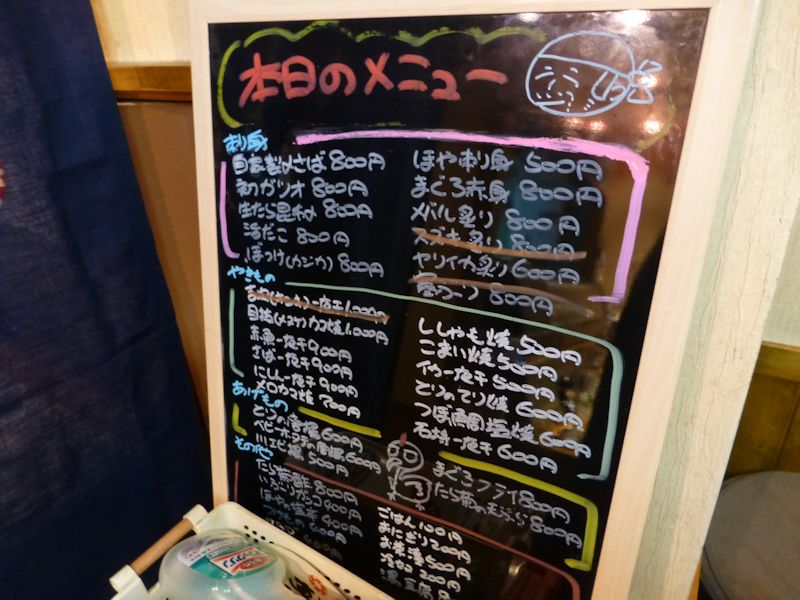 本日のメニュー
刺身
自家製〆さば 800円
初ガツオ 800円
生たら昆布〆 800円
活だこ 800円
ぼっけ(カジカ) 800円
ほや刺身 500円
まぐろ赤身 800円
メバル炙り 800円
スズキ炙り 800円
ヤリイカ炙り 600円
800円
やきもの
一夜干 1,000円
目抜(メヌケ)カマ焼 1,000円
赤魚一夜干 900円
さば一夜干 900円
にしん一夜干 900円
メロカマ焼 700円
ししゃも焼 500円
こまい焼 500円
イカ一夜干 500円
とりのてり焼 600円
つぼ鯛塩焼 600円
石持一夜干 600円
あげもの
とりの唐揚 600円
ベビーホタテ唐揚 600円
川エビ 500円
まぐろフライ 800円
たら菊の天ぷら 800円
その他
たら菊酢 800円
いぶりガッコ 400円
ほやの塩辛 400円
600円
ごはん 100円
おにぎり 200円
お茶漬 500円
冷奴 200円
湯豆腐